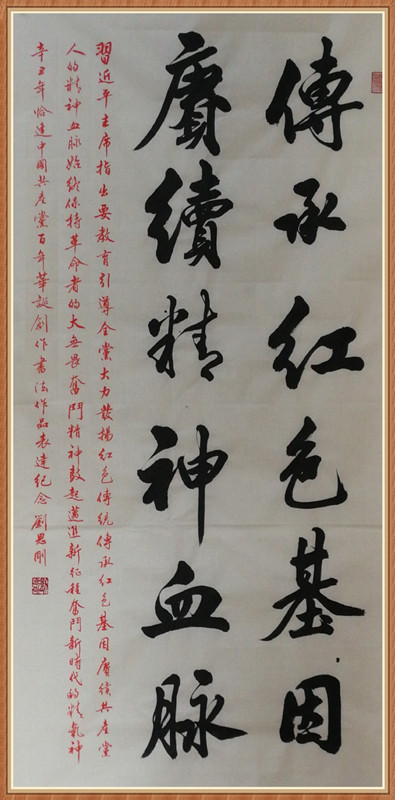 傳承红色基因
賡續精神血脉
習近平主席指出要教育引導全黨大力發揚紅色傳統傳承红色基因賡續共產黨
人的精神血脉始終保持革命者的大無畏奮鬥精神鼓起邁進新征程奮鬥新時代的精氣神
辛丑年恰逢中國共產黨百年華誕創作書法作品表達紀念劉思剛